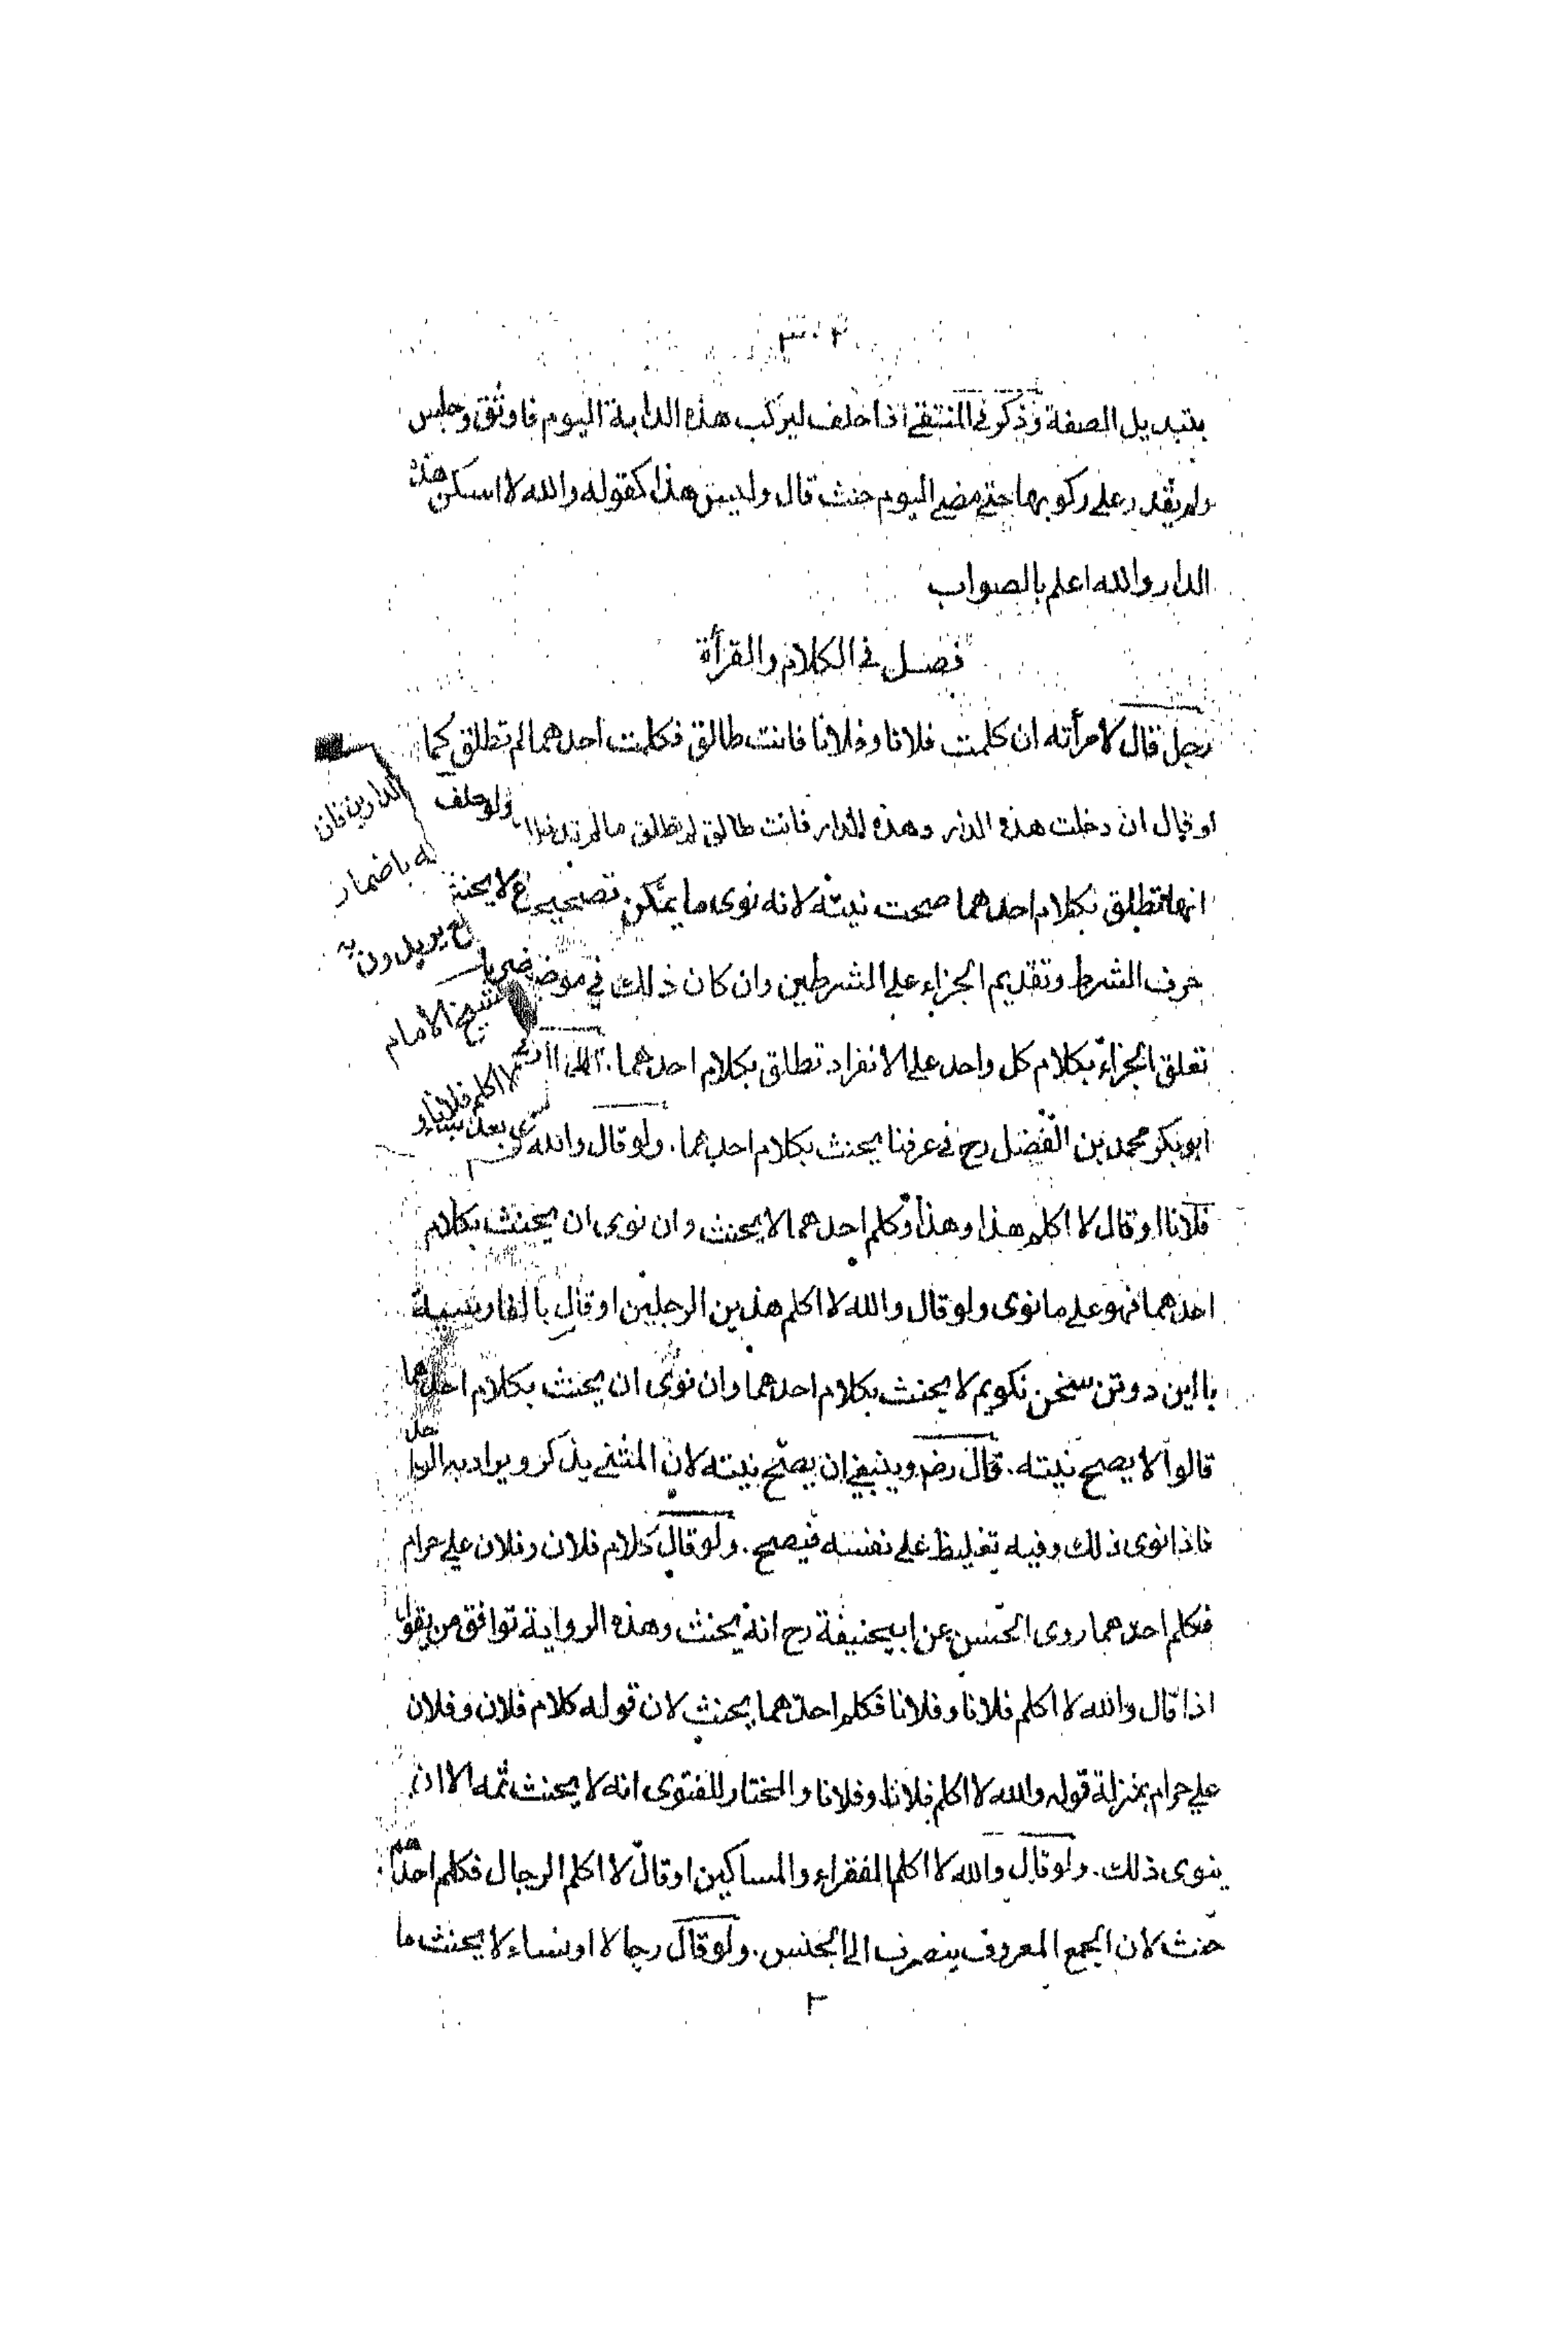 ٣٠٢
بتبديل الصفة وذكر في المنتقى اذا حلف ليركبن هذه الدابة اليوم فاوثق وحبس
ولم يقدر على ركوبها حتى مضى اليوم حنث قال وليس هذا كقوله والله لا اسكن هذه
الدار والله اعلم بالصواب
فصل في الكلام والقرأة
رجل قال لامرأته ان كلمت فلانا وفلانا فانت طالق فكلمت احدهما لم تطلق كما
او قال ان دخلت هذه الدار وهذه الدار فانت طالق لم تطلق ما لم تدخل الدارين فان
انها تطلق بكلام احدهما صحت نيته لانه نوى ما يمكن تصحيحه باضمار
حرف الشرط وتقديم الجزاء على الشرطين وان كان ذلك في موضع يريدون به
تعلق الجزاء بكلام كل واحد على الانفراد تطلق بكلام احدهما. الشيخ الامام
ابو بكر محمد بن الفضل رح في عرفنا يحنث بكلام احدهما. ولو قال والله لا اكلم فلانا و
فلانا او قال لا اكلم هذا وهذا وكلم احدهما لا يحنث وان نوى ان يحنث بكلام
احدهما فهو على ما نوى ولو قال والله لا اكلم هذين الرجلين او قال بالفارسية
با اين دوتن سخن نكويم لا يحنث بكلام احدهما وان نوى ان يحنث بكلام احدهما
قالوا لا يصح نيته. قال رضـ وينبغي ان يصح نيته لان المثنى يذكر ويراد به الواحد
فاذا نوى ذلك وفيه تغليظ على نفسه فيصح. ولو قال كلام فلان وفلان علي حرام
فكلم احدهما روى الحسن عن ابيحنيفة رح انه يحنث وهذه الرواية توافق من يقول
اذا قال والله لا اكلم فلانا وفلانا فكلم احدهما يحنث لان قوله كلام فلان وفلان
علي حرام بمنزلة قوله والله لا اكلم فلانا وفلانا والمختار للفتوى انه لا يحنث ثمه الا ان
ينوى ذلك. ولو قال والله لا اكلم الفقراء والمساكين او قال لا اكلم الرجال فكلم احدهم
حنث لان الجمع المعروف ينصرف الى الجنس. ولو قال رجالا او نساء لا يحنث ما